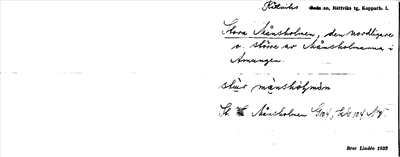 Rättviks sn, Rättviks tg, Kopparb. l.
Stora Månsholmen, den nordligare
o. större av Månsholmarna i
Amungen.
stu̇r mȧnsholmȧn
St. Månsholmen Gk4, Hb 104 NV.
Bror Lindén 1932